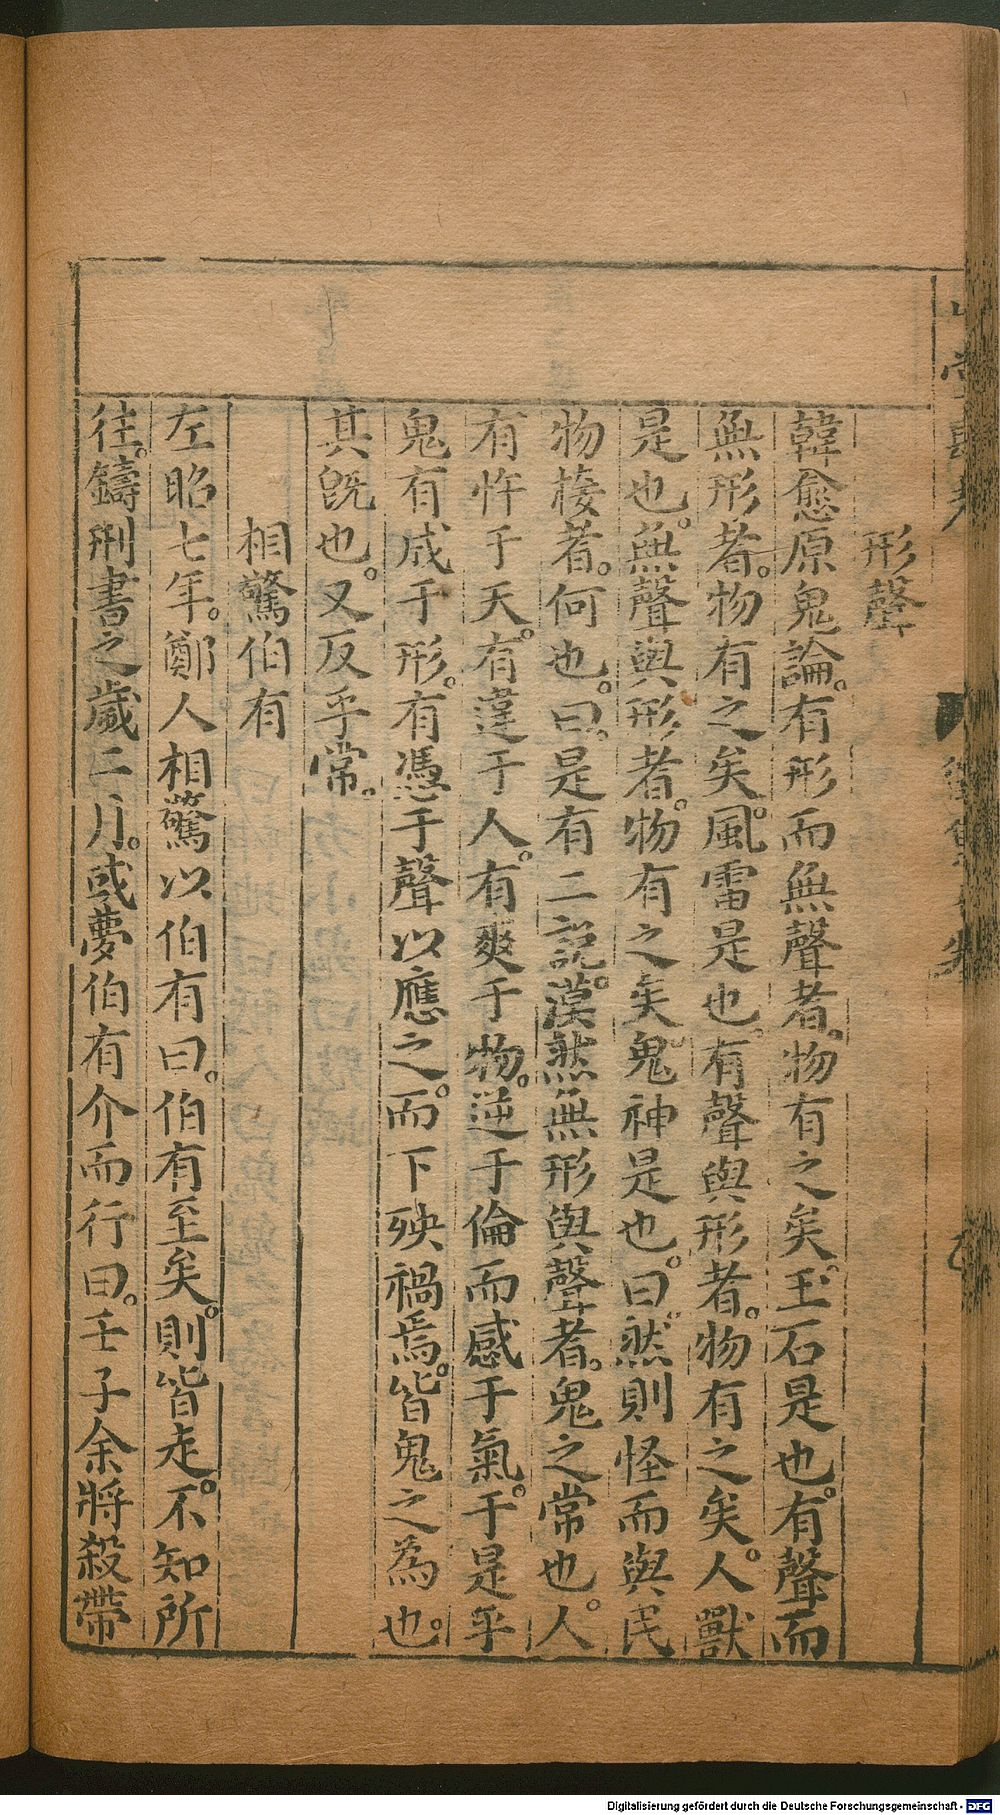 形聲
韓愈原鬼論。有形而無聲者。物有之矣。玉石是也。有聲而
無形者。物有之矣。風雷是也。有聲與形者。物有之矣。人獸
是也。無聲與形者。物有之矣。鬼神是也。曰。然則怪而與民
物接者。何也。曰。是有二說。漠然無形與聲者。鬼之常也。人
有忤于天。有違于人。有爽于物。逆于倫而感于氣。于是乎
鬼有成于形。有憑于聲以應之。而下殃禍焉。皆鬼之為也。
其旣也。又反乎常。
相驚伯有
左昭七年。鄭人相驚以伯有曰。伯有至矣。則皆走。不知所
往。鑄刑書之歲二月。或夢伯有介而行曰。壬子余將殺帶
Digitalisierung gefördert durch die Deutsche Forschungsgemeinschaft - DFG